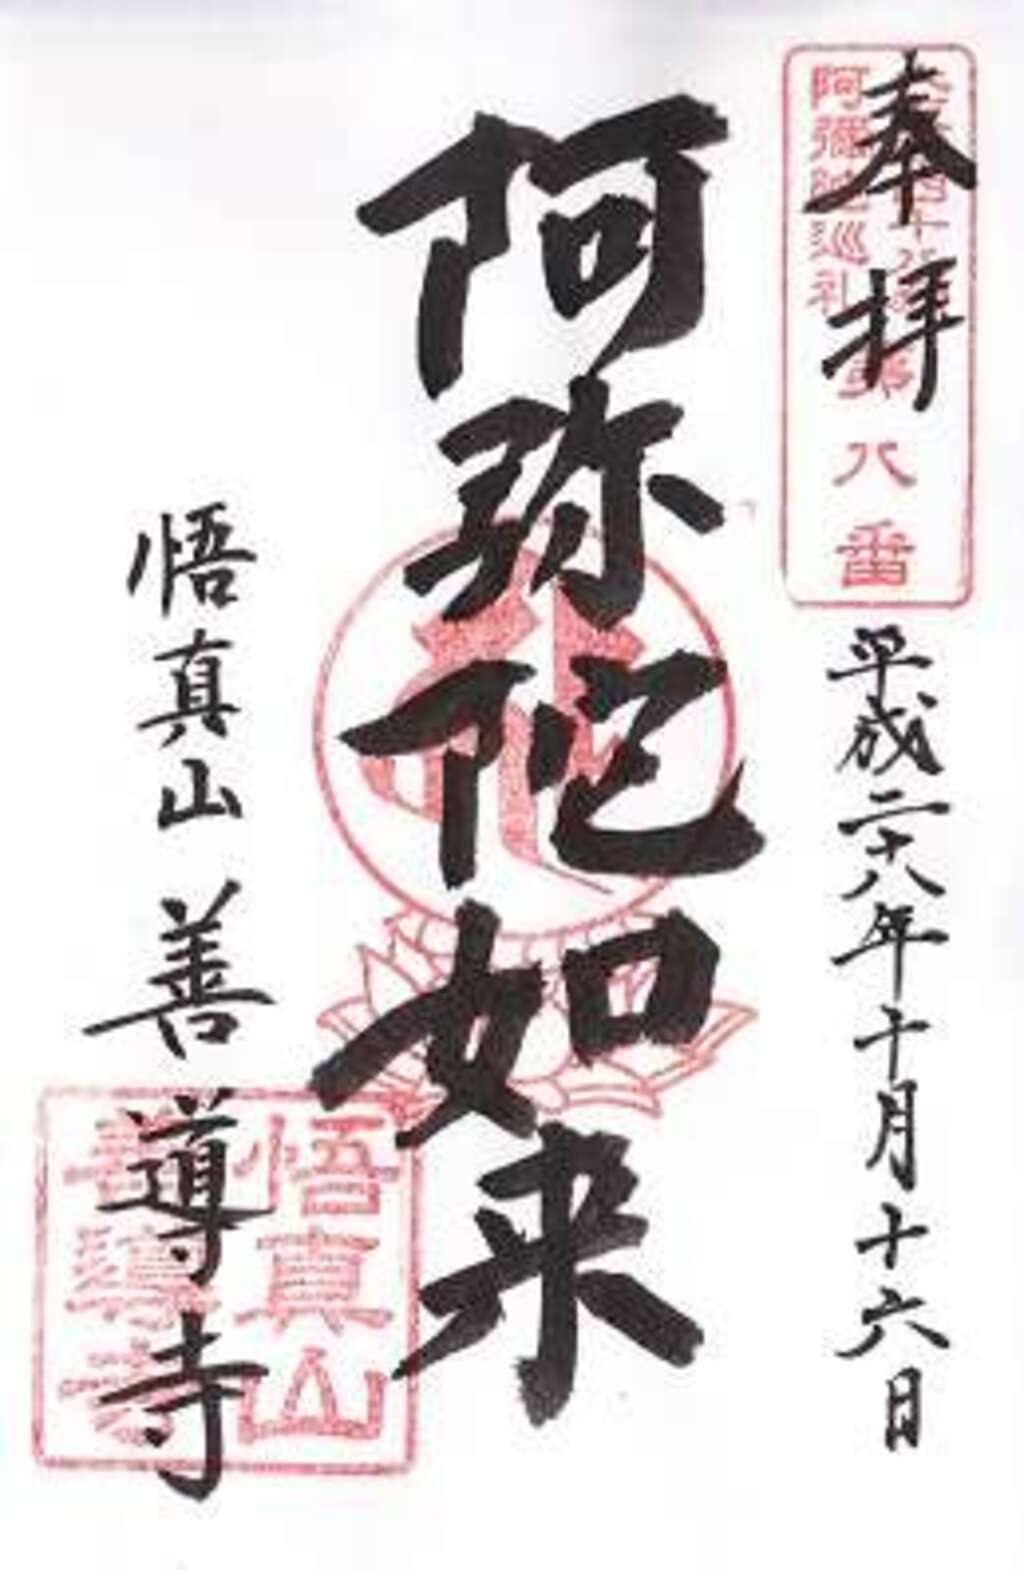 奉拝
阿彌陀巡礼
第八番
平成二十八年十月十六日
阿弥陀如来
悟真山 善導寺
悟真山
善導寺